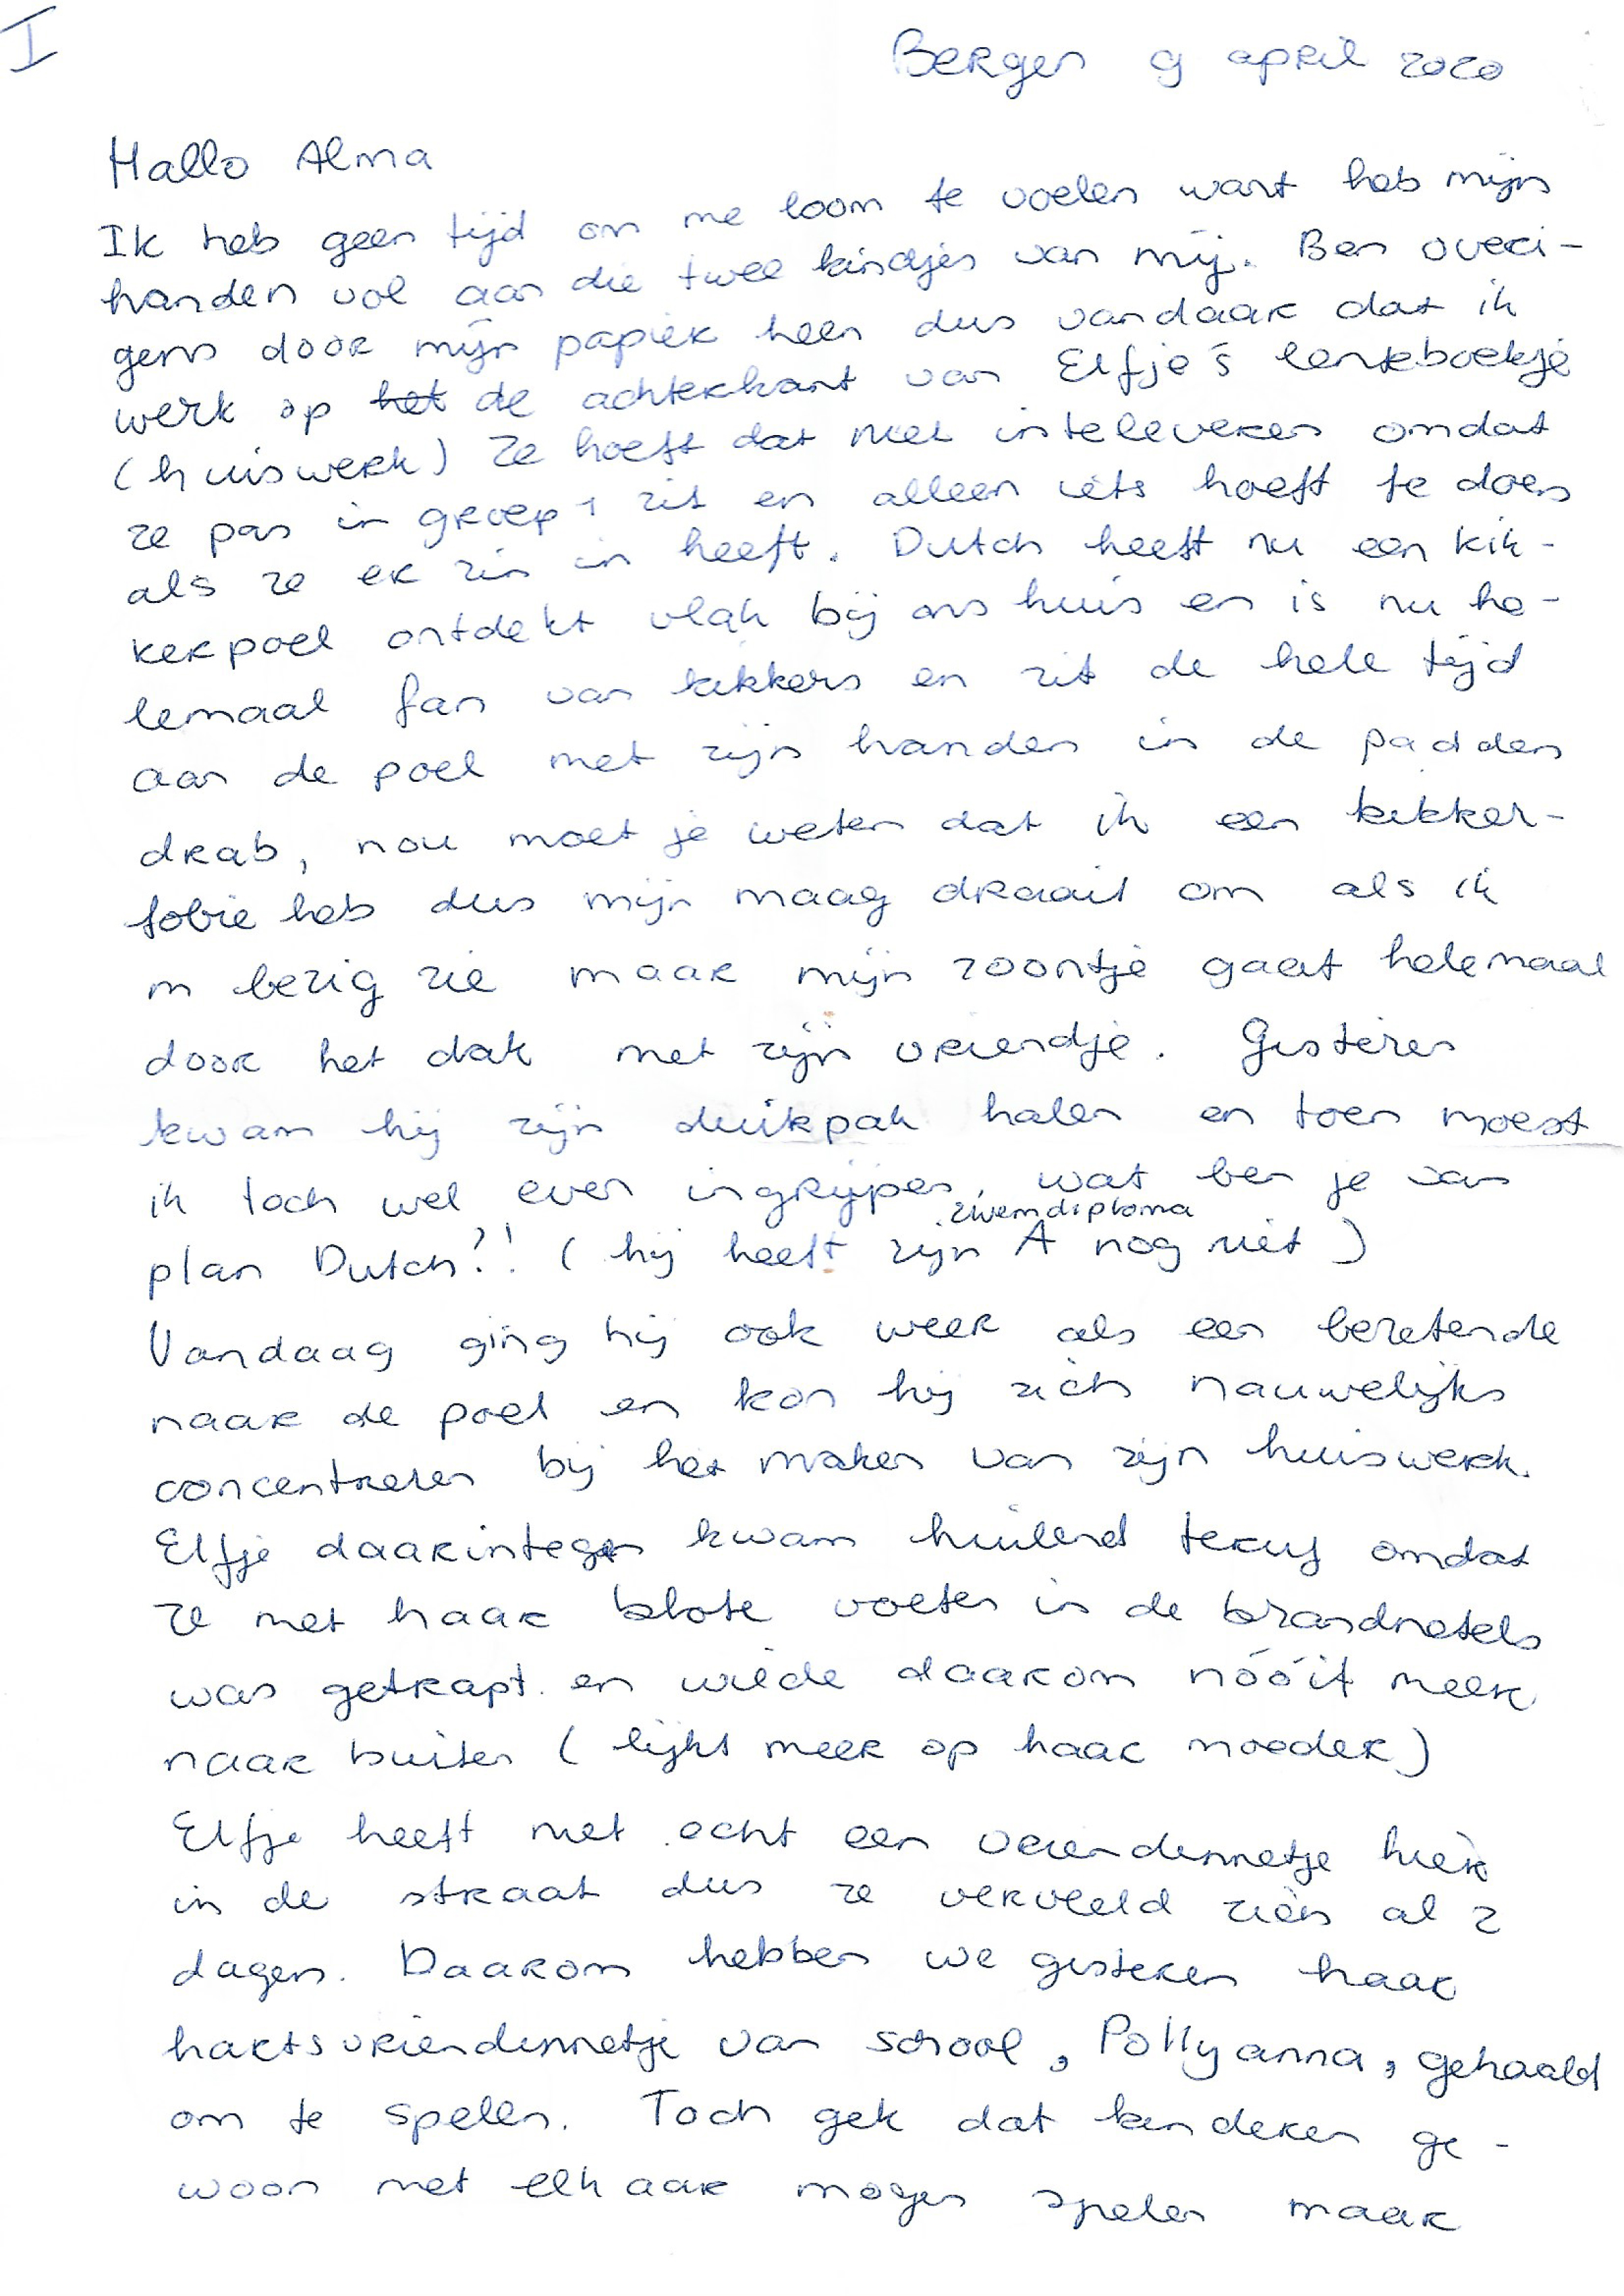 I
Bergen 9 april 2020
Hallo Alma
Ik heb geen tijd om me loom te voelen want heb mijn
handen vol aan die twee kindjes van mij. Ben overi-
gens door mijn papier heen dus vandaar dat ik
werk op het de achterkant van Elfje's lenteboekje
(huiswerk) Ze hoeft dat niet inteleveren omdat
ze pas in groep 1 zit en alleen iets hoeft te doen
als ze er zin in heeft. Dutch heeft nu een kik-
kerpoel ontdekt vlak bij ons huis en is nu he-
lemaal fan van kikkers en zit de hele tijd
aan de poel met zijn handen in de padden
drab, nou moet je weten dat ik een kikker-
fobie heb dus mijn maag draait om als ik
m bezig zie maar mijn zoontje gaat helemaal
door het dak met zijn vriendje. Gisteren
kwam hij zijn duikpak halen en toen moest
ik toch wel even ingrijpen, wat ben je van
zwemdiploma
plan Dutch?! (hij heeft zijn A nog niet)
Vandaag ging hij ook weer als een bezetende
naar de poel en kon hij zich nauwelijks
concentreren bij het maken van zijn huiswerk.
Elfje daarintegen kwam huilend terug omdat
ze met haar blote voeten in de brandnetels
was getrapt en wilde daarom nóóit meer
naar buiten (lijkt meer op haar moeder)
Elfje heeft niet echt een vriendinnetje hier
in de straat dus ze verveeld zich al 2
dagen. Daarom hebben we gisteren haar
hartsvriendinnetje van school, Pollyanna, gehaald
om te spelen. Toch gek dat kinderen ge-
woon met elkaar mogen spelen maar